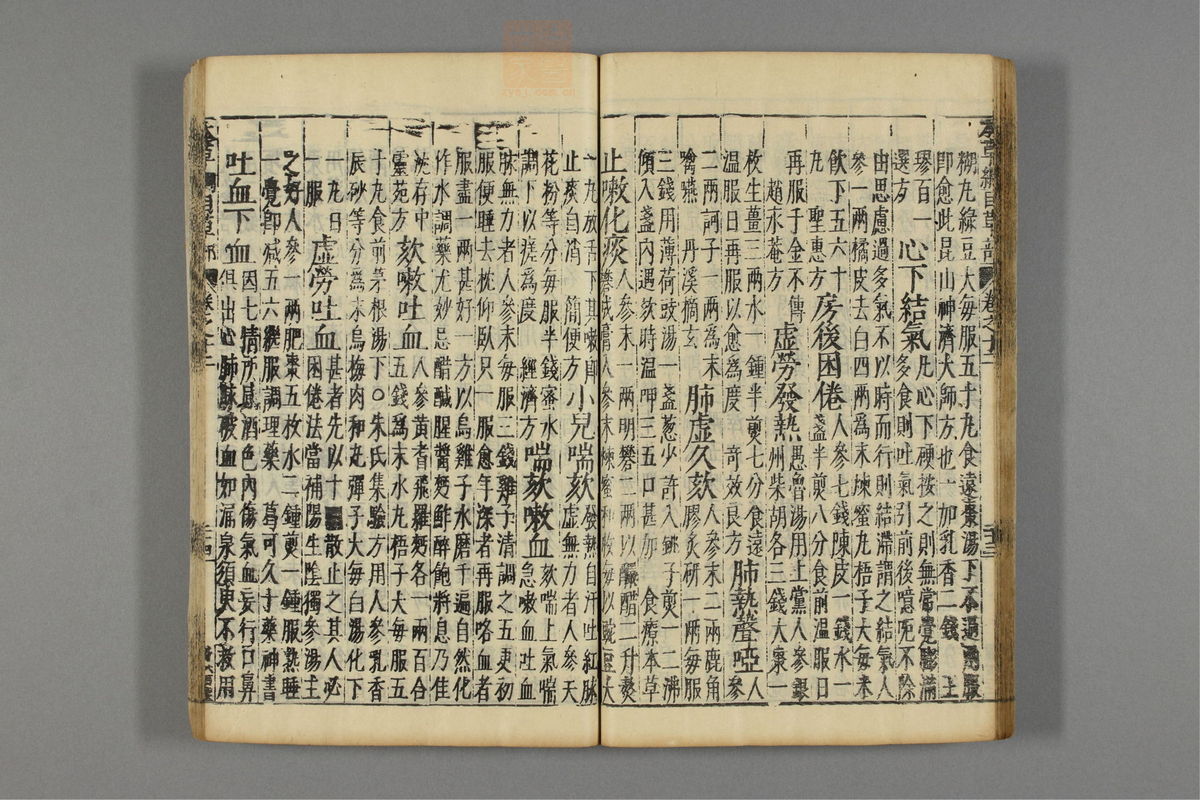 糊丸綠豆大每服五十丸食遠棗湯下不過兩服
即愈此昆山神濟大師方也一加乳香二錢 王
璆百一
選方 心下結氣 凡心下硬按之則無常覺膨滿
多食則吐氣引前後噫呃不除
由思慮過多氣不以時而行則結滯謂之結氣人
參一兩橘皮去白四兩爲末煉蜜丸梧子大每米
飲下五六十
丸 聖惠方 房後困倦 人參七錢陳皮一錢水一
盞半煎八分食前温服日
再服千金不傳
趙永菴方 虛勞發熱 愚魯湯用上黨人參銀
州柴胡各三錢大棗一
枚生薑三片水一鍾半煎七分食遠
温服日再服以愈爲度 奇效良方 肺熱聲啞 人
參
二兩訶子一兩爲末
噙嚥 丹溪摘玄 肺虛久欬 人參末二兩鹿角
膠炙研一兩每服
三錢用薄荷豉湯一盞葱少許入銚子煎一二沸
傾入盞内遇欬時温呷三五口甚加 食療本草
止嗽化痰 人參末一兩明礬二兩以釅醋二升熬
礬成膏入參末煉蜜和收每以豌豆大
一丸放舌下其嗽即
止痰自消 簡便方 小兒喘欬 發熱自汗吐紅脉
虛無力者人參天
花粉等分每服半錢蜜水
調下以瘥爲度 經濟方 喘欬嗽血 欬喘上氣喘
急嗽血吐血
脉無力者人參末每服三錢雞子清調之五更初
服便睡去枕仰臥只一服愈年深者再服咯血者
服盡一兩甚好一方以烏雞子水磨千遍自然化
作水調藥尤妙忌醋鹹腥醬麪鮓醉飽將息乃佳
沈存中
靈苑方 欬嗽吐血 人參黃耆飛羅麪各一兩百合
五錢爲末水丸梧子大每服五
十丸食前茅根湯下○朱氏集驗方用人參乳香
辰砂等分爲末烏梅肉和丸彈子大每白湯化下
一丸日
一服 虛勞吐血 甚者先以十散止之其人必
困倦法當補陽生陰獨參湯主
之好人參一兩肥棗五枚水二鍾煎一鍾服熟睡
一覺即減五六繼服調理藥 葛可久十藥神書
吐血下血 因七情所感酒色内傷氣血妄行口鼻
俱出心肺脉破血如湧泉須臾不救用